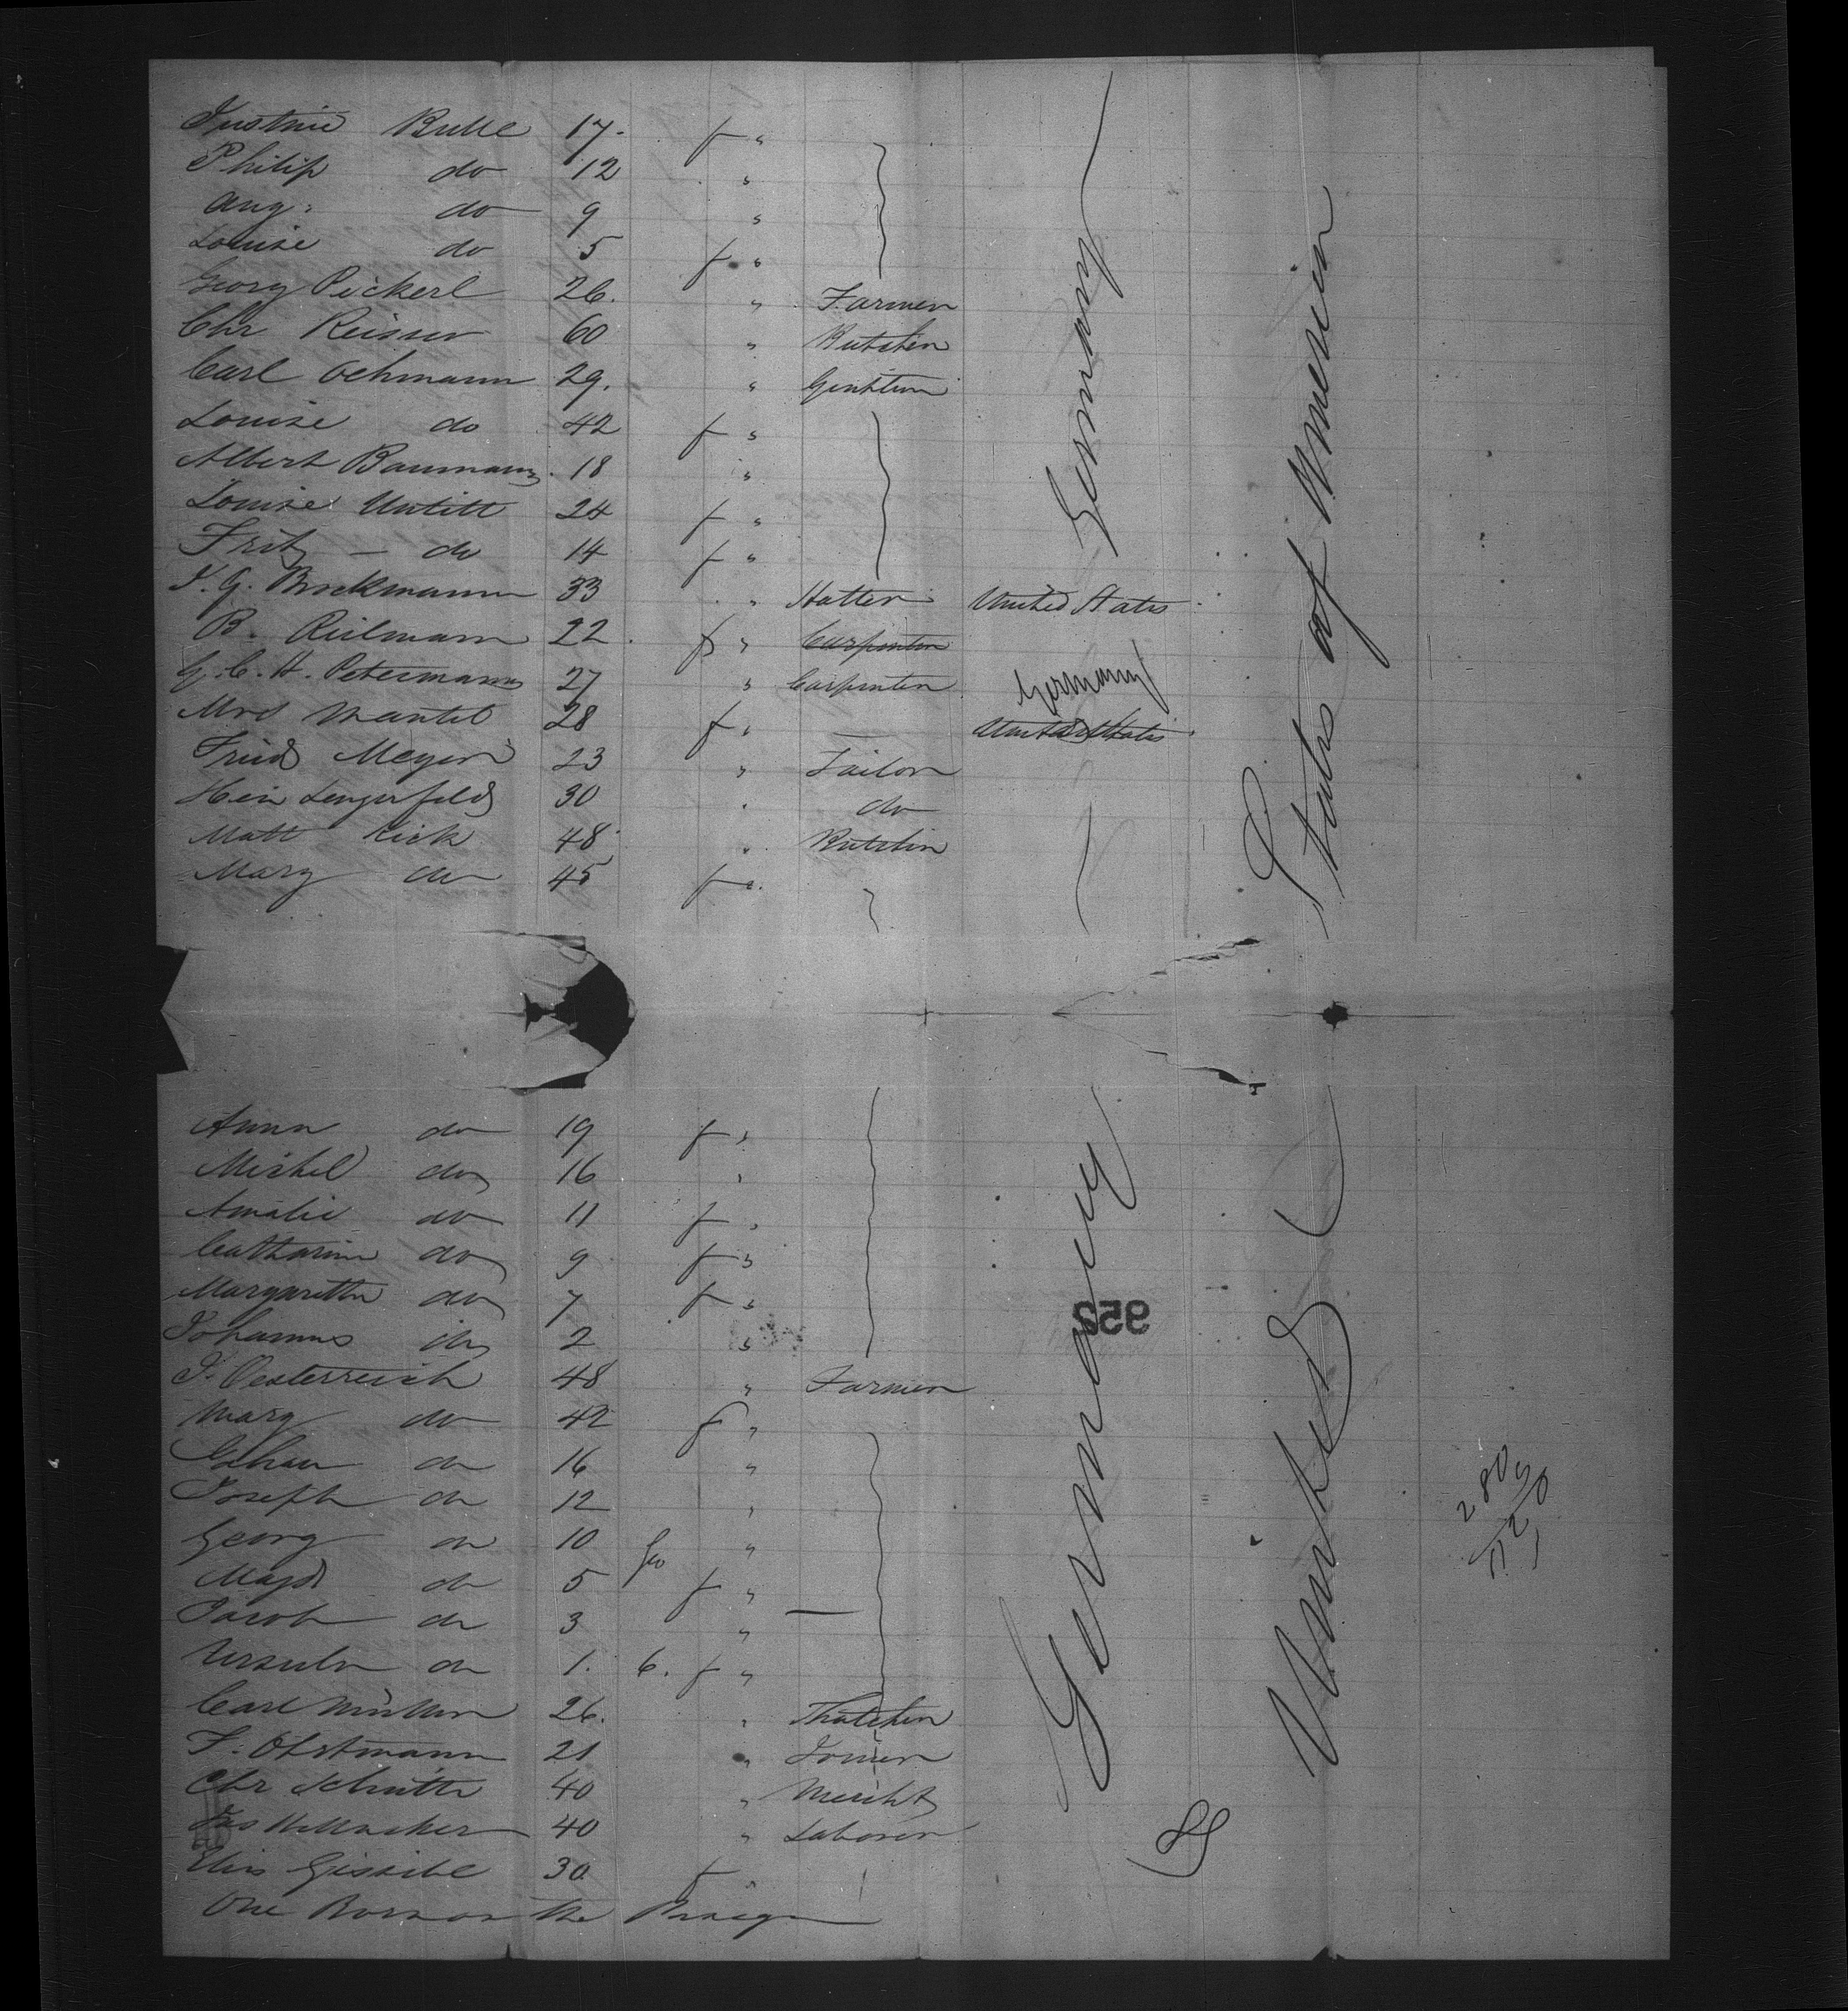 Justine Bulle 17. f "
Philip do 12 "
Aug: do 9 "
Louise do 5 f "
Georg Pickerl 26. " Farmer
Chr Reisser 60 " Butcher
Carl Oehmann 29. " Gentlem
Louise do 42 f "
Albert Baumann 18 "
Louise Untitt 24 f "
Fritz — do 14 f "
J. G. Brockmann 33 " Hatter United States
B. Rielmann 22 f " Carpenter
G. C. H. Petermann 27 " Carpenter Germany
Mrs Mantel 28 f " — United States
Fried Meyer 23 " Tailor
Hein Lengerfeld 30 " do
Matt Kick 48 " Butcher
Mary do 45 f "
Germany
States of America
Anna do 19 f "
Michel do 16 "
Amalie do 11 f "
Catharine do 9 f "
Margaretha do 7 f "
Johannes do 2 "
J. Oesterreich 48 " Farmer
Mary do 42 f "
Johan do 16 "
Joseph do 12 "
Georg do 10 "
Magd do 5 f "
Jacob do 3 " —
Ursula do 1. 6. f "
Carl Müller 26. " Thatcher
F. Obstmann 21 " Joiner
Chr Schütte 40 " Mercht
40 " Laborer
Elis Gissibl 30 f "
One Born on the Passage
Germany
952
United
280